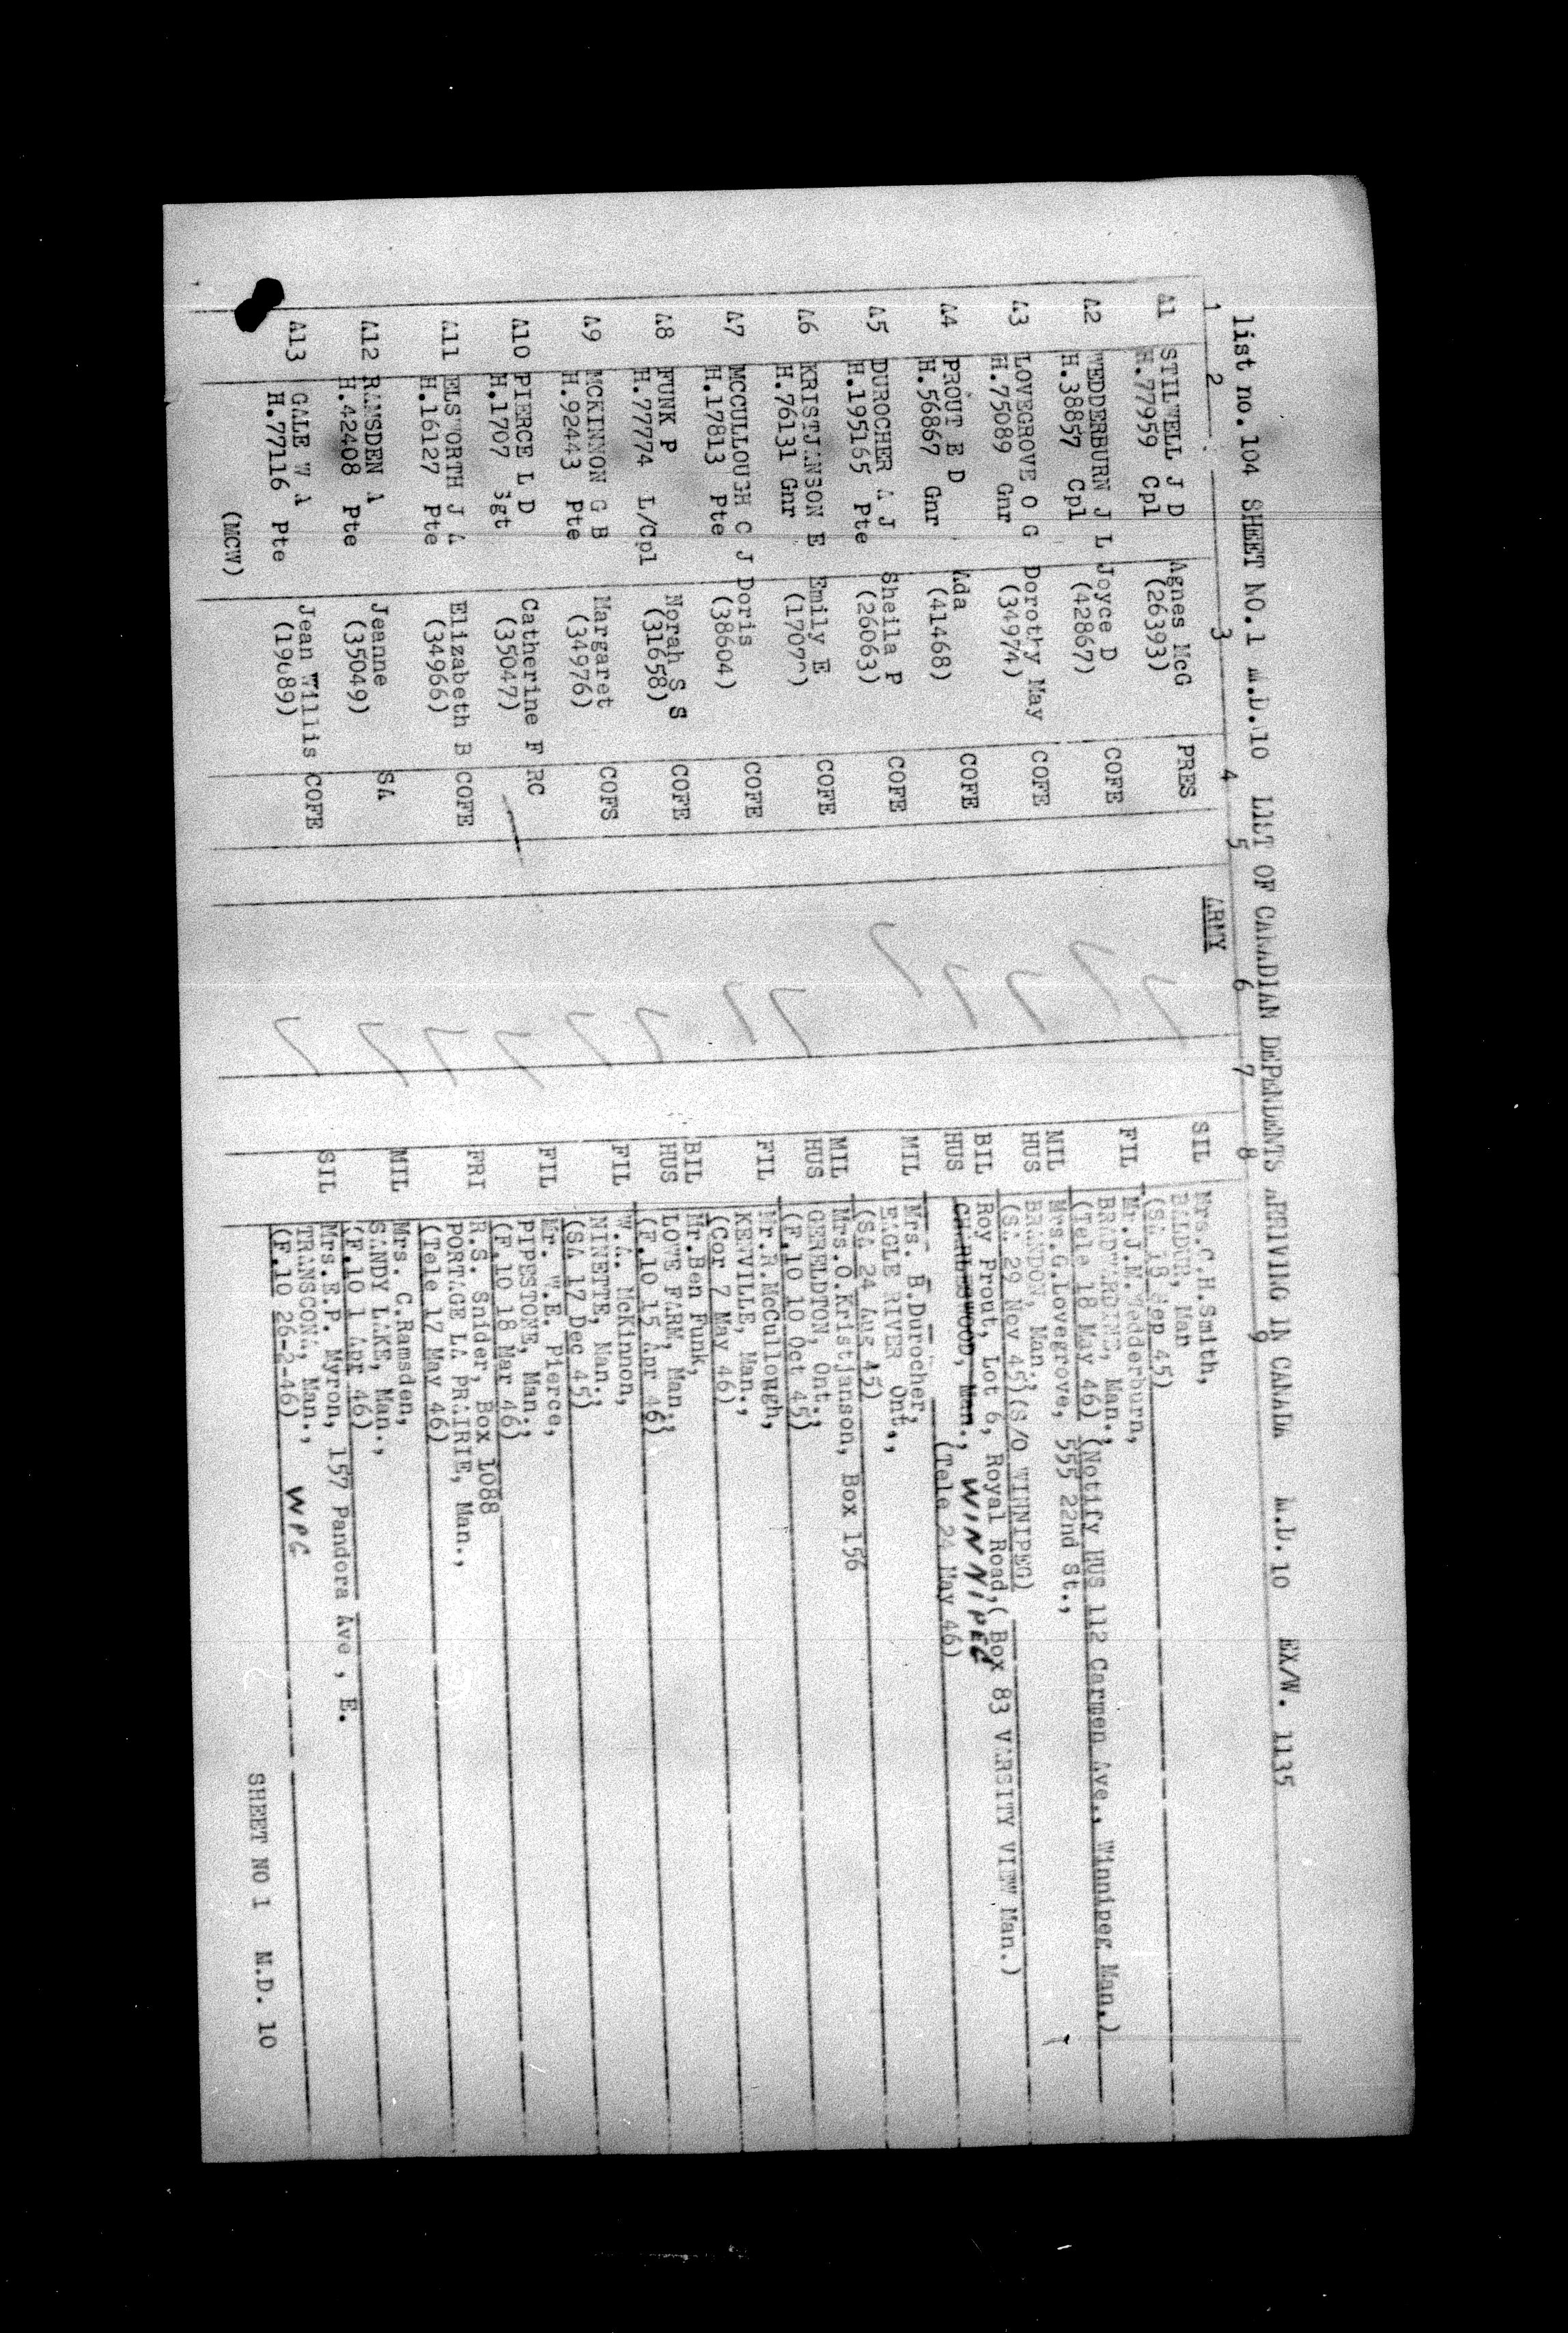 list no.104 SHEET NO.1 M.D.10 LIST OF CANADIAN DEPENDENTS ARRIVING IN CANADA M.D. 10 EX/W. 1135
1 2 3 4 5 6 7 8 9
ARMY
A1 STILWELL J D Agnes McG PRES SIL Mrs.C.H.Smith,
H.77959 Cpl (26393) BALDUR, Man
(SA 18 Sep 45)
A2 WEDDERBURN J L Joyce D COFE FIL Mr.J.N.Wedderburn,
H.38857 Cpl (42867) Man.,
(Tele 18 May 46) (Notify HUS 112 Carmen Ave., Winnipeg Man.)
A3 LOVEGROVE O G Dorothy May COFE MIL Mrs.G.Lovegrove, 555 22nd St.,
H.75089 Gnr (34974) HUS BRANDON, Man.,
(SA 29 Nov 45)(S/O WINNIPEG)
A4 PROUT E D Ada COFE BIL Roy Prout, Lot 6, Royal Road,( Box 83 VARSITY VIEW Man.)
H.56867 Gnr (41468) HUS CHARLESWOOD, Man., WINNIPEG
(Tele 24 May 46)
A5 DUROCHER A J Sheila P COFE MIL Mrs. B.Durocher,
H.195165 Pte (26063) EAGLE RIVER Ont.,
(SA 24 Aug 45)
A6 KRISTJANSON E Emily E COFE MIL Mrs.O.Kristjanson, Box 156
H.76131 Gnr HUS GERELDTON, Ont.,
(F.10 10 Oct 45)
A7 MCCULLOUGH C J Doris COFE FIL Mr.R.McCullough,
H.17813 Pte (38604) KENVILLE, Man.,
(Cor 7 May 46)
A8 FUNK P Norah S S COFE BIL Mr.Ben Funk,
H.77774 L/Cpl (31658) HUS LOWE FARM, Man.,
(F.10 15 Apr 46)
A9 MCKINNON G B Margaret COFS FIL W.A. McKinnon,
H.92443 Pte (34976) NINETTE, Man.,
(SA 17 Dec 45)
A10 PIERCE L D Catherine F RC FIL Mr. W.E. Pierce,
H.1707 Sgt (35047) PIPESTONE, Man.,
(F.10 18 Mar 46)
A11 ELSWORTH J A Elizabeth B COFE FRI R.S. Snider, Box 1088
H.16127 Pte (34966) PORTAGE LA PRAIRIE, Man.,
(Tele 17 May 46)
A12 RAMSDEN A Jeanne SA MIL Mrs. C.Ramsden,
H.42408 Pte (35049) SANDY LAKE, Man.,
(F.10 1 Apr 46)
A13 GALE W A Jean Willis COFE SIL Mrs.E.P. Myron, 157 Pandora Ave , E.
H.77116 Pte TRANSCONA, Man., WPG
(F.10 26-2-46)
(MCW)
SHEET NO 1 M.D. 10